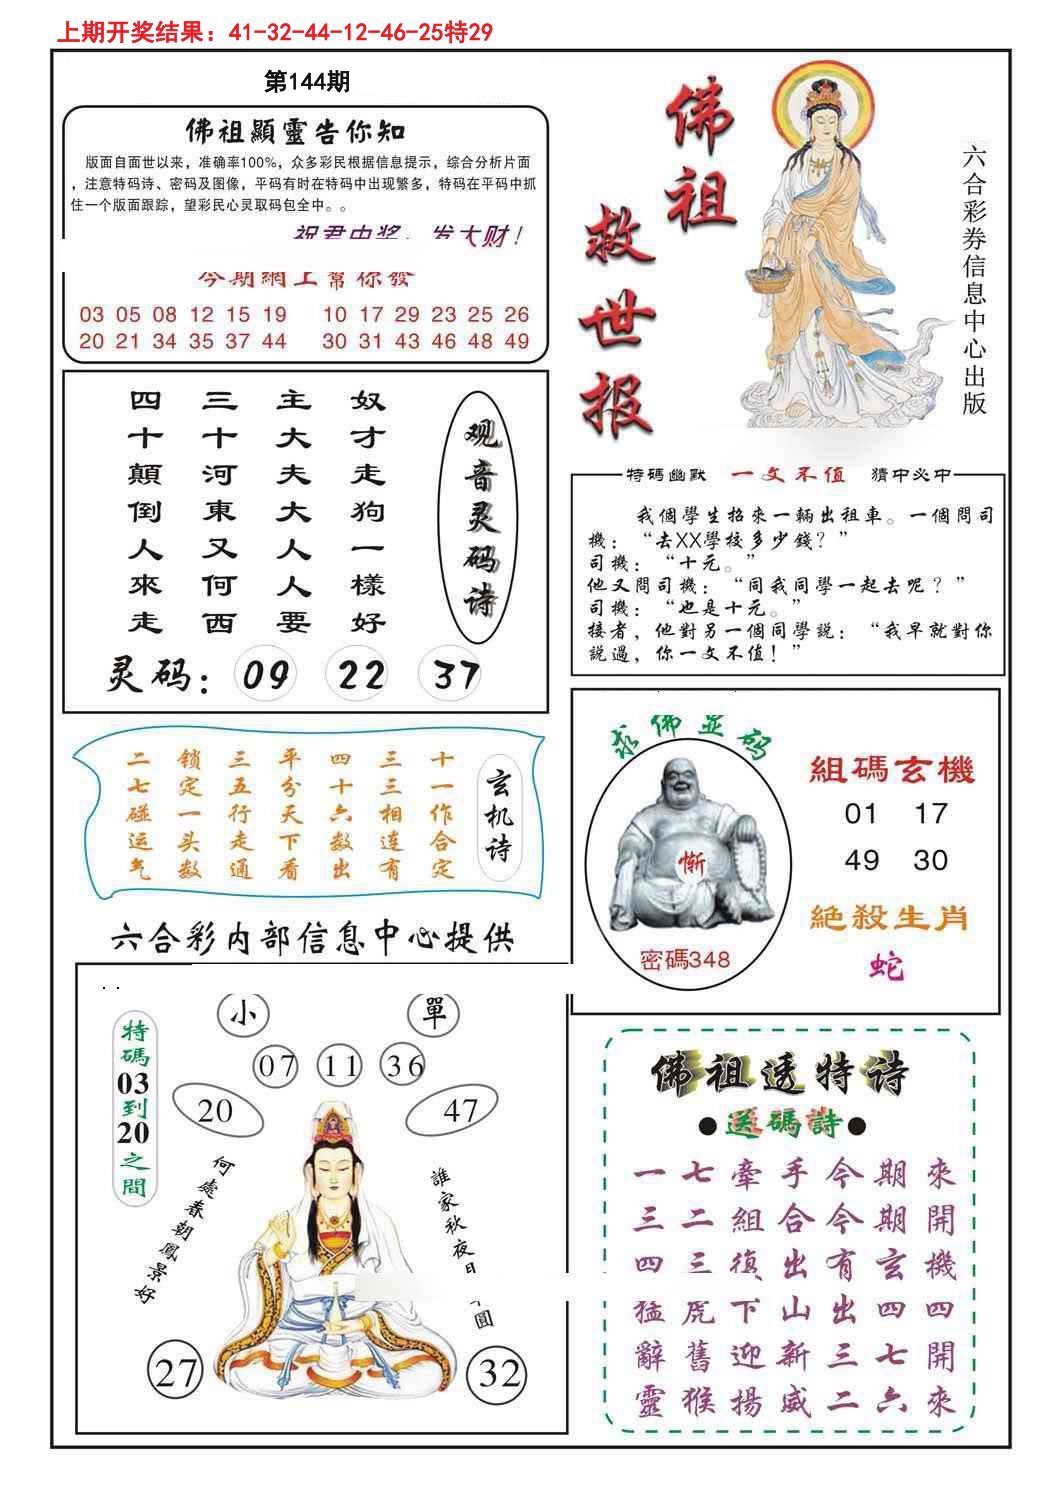 上期开奖结果：41-32-44-12-46-25特29
第144期
佛祖顯靈告你知
版面自面世以来，准确率100%，众多彩民根据信息提示，综合分析片面
，注意特码诗、密码及图像，平码有时在特码中出现繁多，特码在平码中抓
住一个版面跟踪，望彩民心灵取码包全中。。
祝君中奖，发大财！
今期網上幫你發
03 05 08 12 15 19 10 17 29 23 25 26
20 21 34 35 37 44 30 31 43 46 48 49
佛祖
救世报
六合彩券信息中心出版
观音灵码诗
奴才走狗一樣好
主大夫大人人要
三十河東又何西
四十顛倒人來走
灵码：09 22 37
特碼幽默 一文不值 猜中必中
我個學生招來一輛出租車。一個問司
機：“去XX學校多少錢？”
司機：“十元。”
他又問司機：“同我同學一起去呢？”
司機：“也是十元。”
接者，他對另一個同學説：“我早就對你
説過，你一文不值！”
玄机诗
十一作合定
三三相连有
四十六数出
平分天下看
三五行走通
锁定一头数
二七碰运气
求佛显码
惭
密碼348
組碼玄機
01 17
49 30
絶殺生肖
蛇
六合彩内部信息中心提供
特碼03到20之間
小 單
07 11 36
20 47
何處春朝鳳景好
誰家秋夜月
圓
27 32
佛祖透特诗
●送碼詩●
一七牽手今期來
三二組合今期開
四三復出有玄機
猛虎下山出四四
辭舊迎新三七開
靈猴揚威二六來